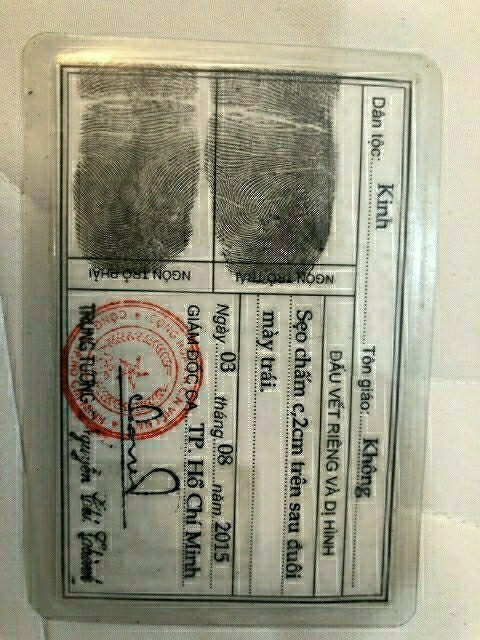 Dân tộc: Kinh Tôn giáo: Không
DẤU VẾT RIÊNG VÀ DỊ HÌNH
Sẹo chấm c,2cm trên sau đuôi
mày trái.
NGÓN TRỎ TRÁI
NGÓN TRỎ PHẢI
Ngày 03 tháng 08 năm 2015
GIÁM ĐỐC CA. TP. Hồ Chí Minh
TRUNG TƯỚNG Nguyễn Chí